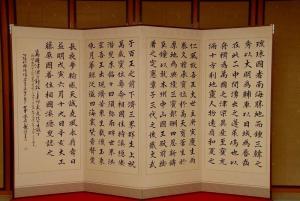 琉球國者南海勝地而鍾三韓之
秀以大明為輔車以日域為脣齒
在此二中間湧出之蓬萊嶋也以
舟楫為萬國之津梁異産至寳充
滿十方刹地靈人物遠扇和夏之
仁風故吾王大世主庚寅慶生尚
泰久茲承寳位於高天育蒼生於
厚地為興隆三寳報酬四恩新鑄
巨鐘以就本州中山國王殿前掛
着之定憲章于三代之後戢文武
于百王之前下濟三界群生上祝
萬歳寳位辱命相國住持溪隠安
潜叟求銘銘曰須弥南畔世界洪
宏吾王出現濟苦衆生截流玉象
吼月華鯨泛溢四海震梵音聲覺
長夜夢輸感天誠堯風永扇舜日
益明戊寅六月十九日辛亥大工
藤原國善住相國溪隠叟誌之